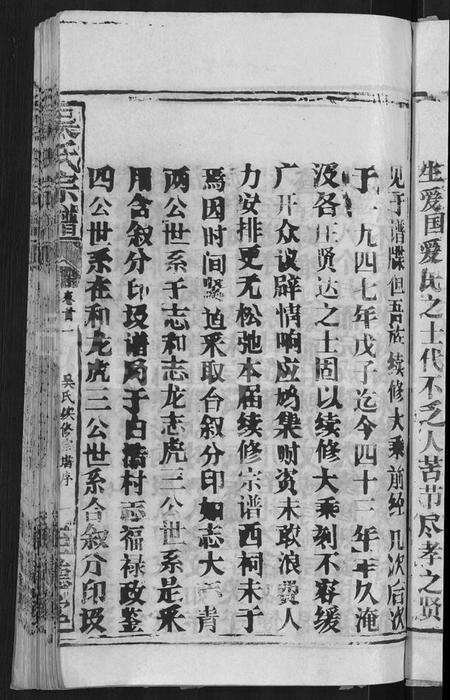 生爱国爱民之士代不乏人苦节尽孝之贤
见于谱牒但吾族续修大乘前经几次后次
于一九四七年戊子迄今四十三年年久淹
没各庄贤达之士固以续修大乘刻不容缓
广开众议辟情响应鸠集财资未敢浪费人
力安排更无松弛本届续修宗谱西祠未于
焉因时间紧迫采取合叙分印如志大志青
两公世系于志和志龙志虎三公世系是采
用合叙分印圾谱局于白桥村志福禄政鉴
四公世系在和龙虎三公世系合叙分印圾
吴氏宗谱
卷首
吴氏续修宗谱序